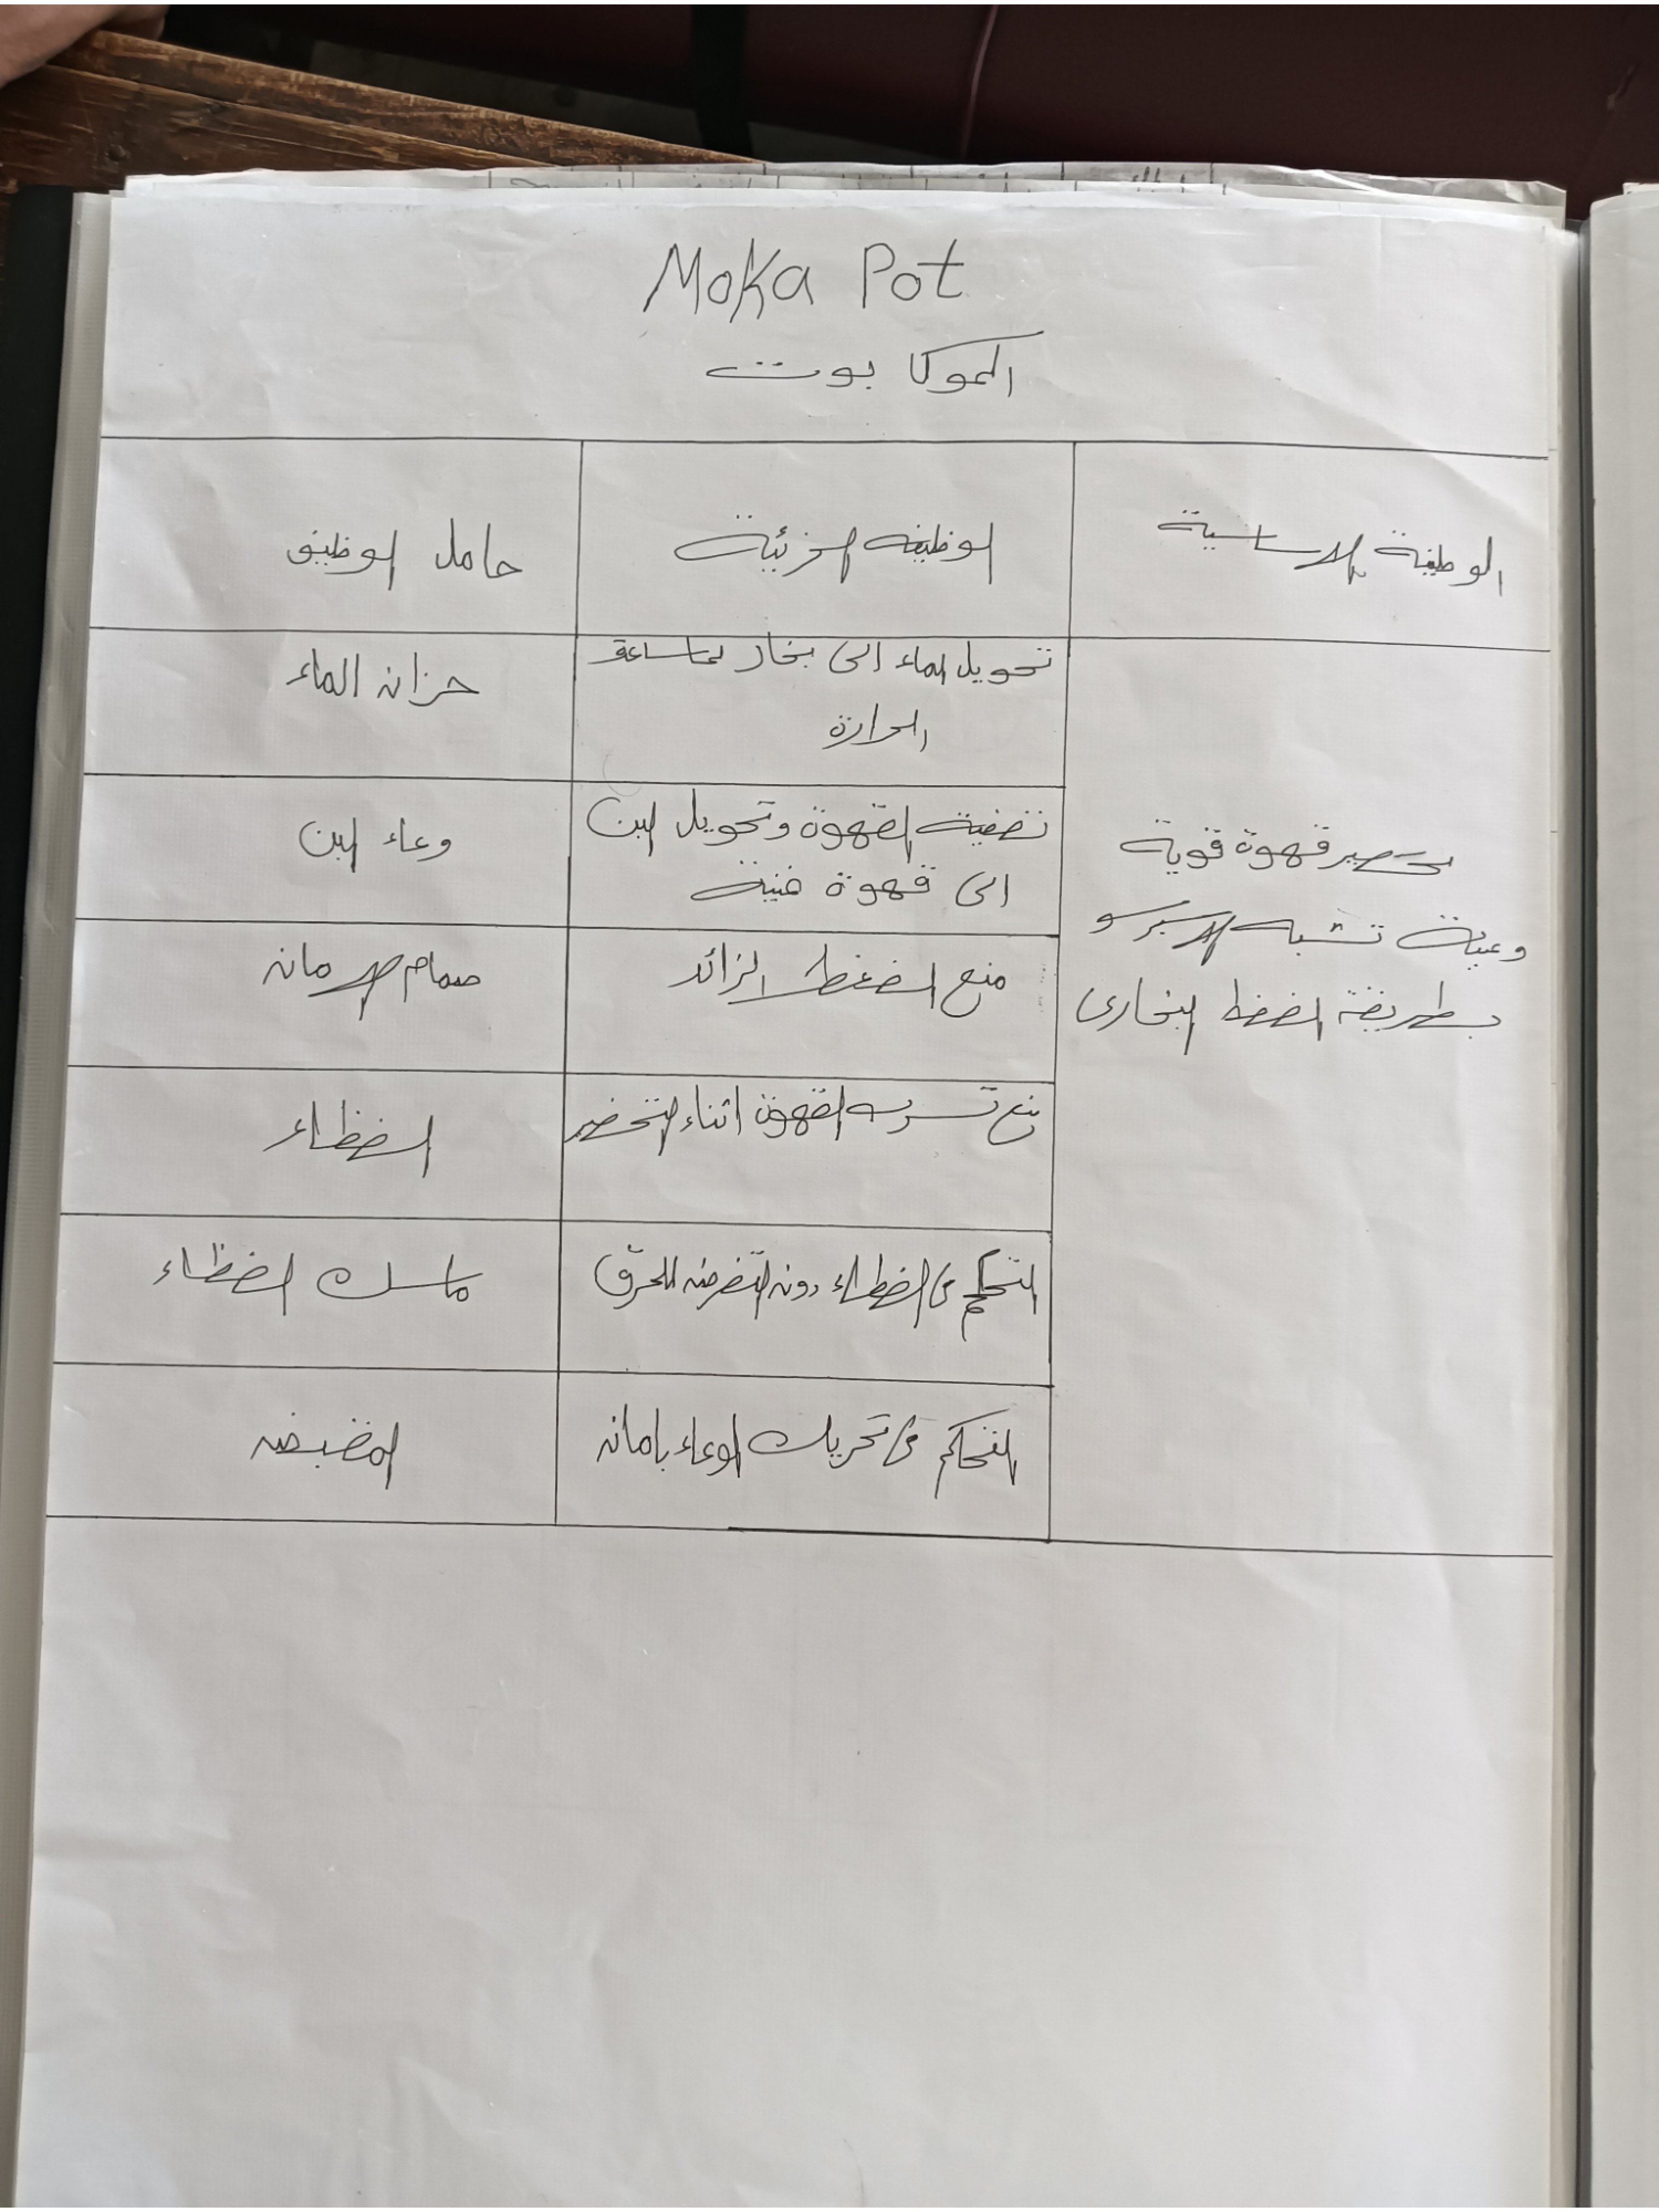 Moka Pot
الموكا بوت
الوظيفة الاساسية
الوظيفه الجزئية
حامل الوظيفى
تحويل الماء الى بخار بمساعدة
الحرارة
خزان الماء
تحضير قهوة قوية
وغنية تشبه الاسبرسو
بطريقة الضغط البخارى
تصفية القهوة وتحويل البن
الى قهوة غنية
وعاء البن
منع الضغط الزائد
صمام الامان
منع تسرب القهوة اثناء التحضير
الغطاء
التحكم فى الغطاء دون التعرض للحرق
ماسك الغطاء
التحكم فى تحريك الوعاء بامان
المقبض